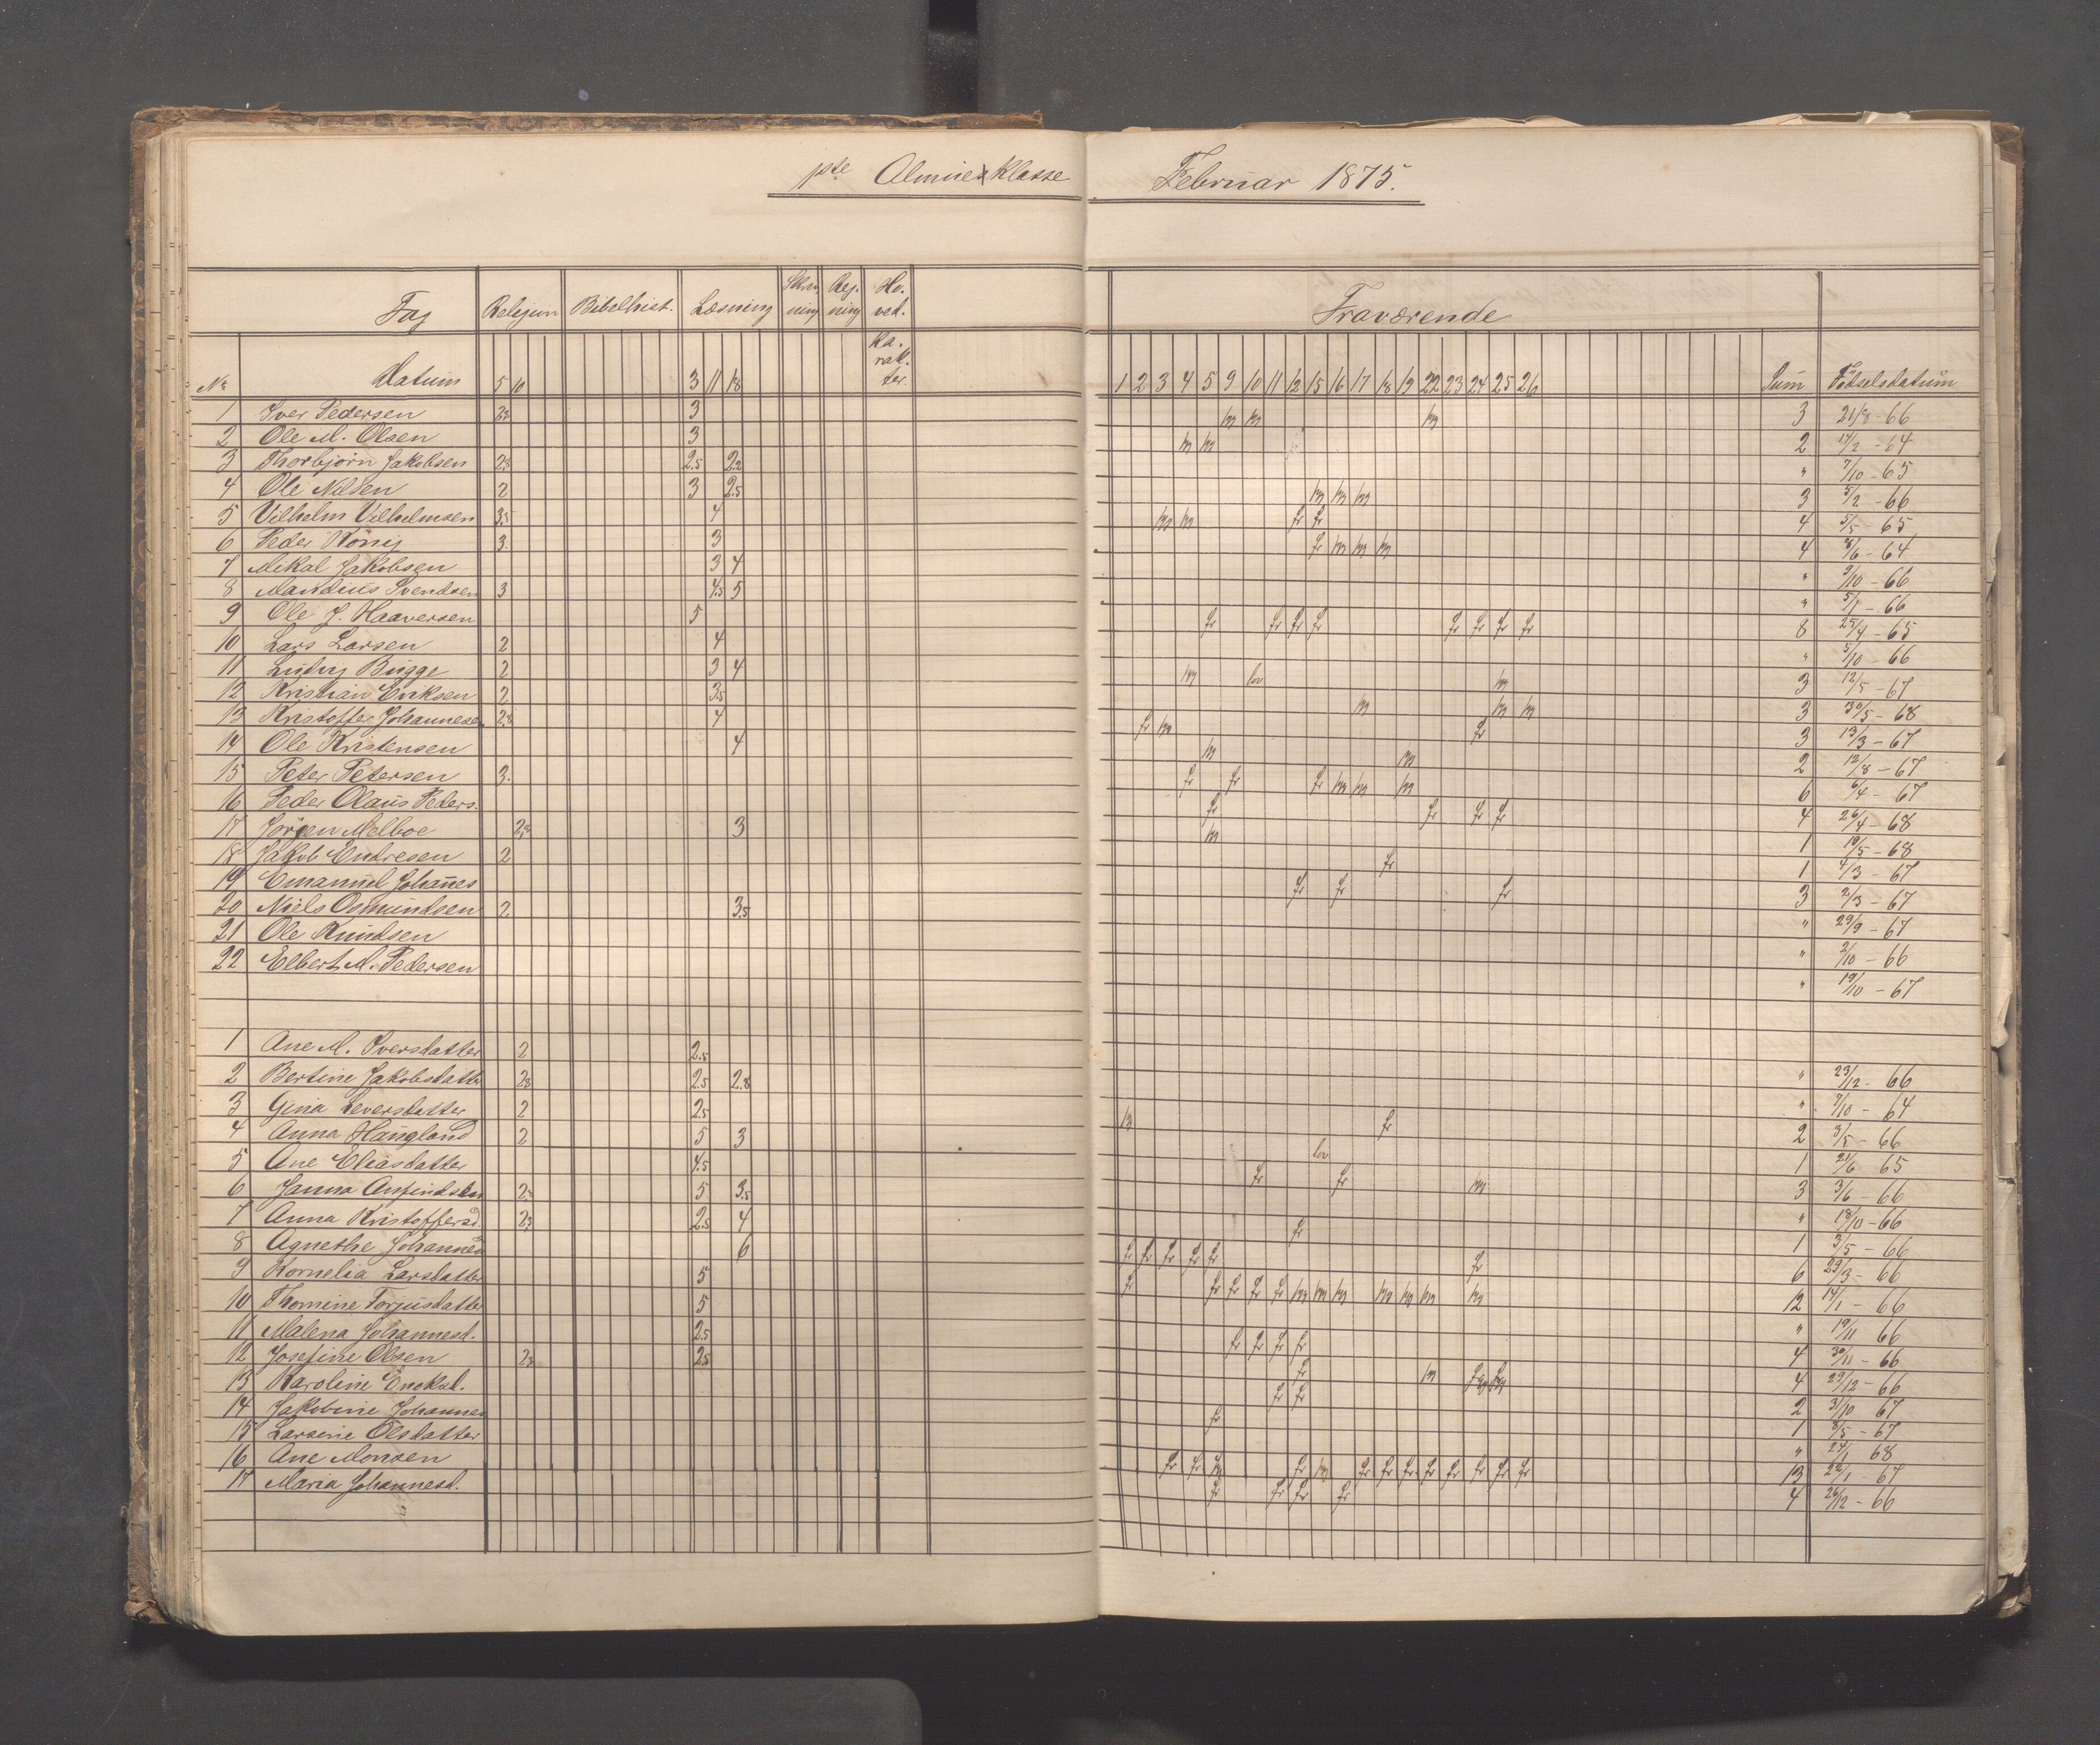 1ste Almueklasse Februar 1875.
Fag Religion Bibelhist. Læsning Skrivning Regning Hoved. Ka. rak. ter. Fraværende
No Datum 5 10 3 11 18 1 2 3 4 5 9 10 11 12 15 16 17 18 19 22 23 24 25 26 Sum Fødselsdatum
1 Iver Pedersen 3 m m m 3 21/8 - 66
2 Ole M. Olsen 3 m m 2 17/2 - 64
3 Thorbjørn Jakobsen 2.5 2.2 " 7/10 - 65
4 Ole Nilsen 2 3 2.5 m m m 3 5/2 - 66
5 Vilhelm Vilhelmsen 3.5 4 m m fr fr 4 5/5 - 65
6 Peder König 3. 3 fr m m m 4 8/6 - 64
7 Mikal Jakobsen 3 4 " 9/10 - 66
8 Mandius Svendsen 3 4.5 5 " 5/1 - 66
9 Ole J. Haaversen 5 fr fr fr fr fr fr fr fr 8 25/4 - 65
10 Lars Larsen 2 4 " 5/10 - 66
11 Ludvig Bugge 2 3 4 m lov m 3 12/5 - 67
12 Kristian Eriksen 2 3.5 m m m 3 30/5 - 68
13 Kristoffer Johannesen 2.8 4 fr m fr 3 13/3 - 67
14 Ole Kristensen 4 m m 2 12/8 - 67
15 Peter Petersen 3. fr fr fr m m m 6 6/4 - 67
16 Peder Olaus Peders. fr fr fr fr 4 26/4 - 68
17 Jørgen Melboe 2.8 3 m 1 19/5 - 68
18 Jakob Endresen 2 fr 1 4/3 - 67
19 Emanuel Johañes fr fr fr 3 2/3 - 67
20 Niels Osmundsen 2 3.5 " 29/9 - 67
21 Ole Knudsen " 2/10 - 66
22 Elbert M. Pedersen " 19/10 - 67
1 Ane M. Iversdatter 2 2.5 " 23/12 - 66
2 Bertine Jakobsdatter 2.8 2.5 2.8 " 7/10 - 64
3 Gina Seversdatter 2 2.5 fr 2 3/5 - 66
4 Anna Haugland 2 5 3 lov 1 21/6 65
5 Ane Eliasdatter 4.5 fr fr m 3 3/6 - 66
6 Janna Anfindsen 5 3.5 " 18/10 - 66
7 Anna Kristoffersd. 2.3 2.5 4 fr 1 3/5 - 66
8 Agnethe Johannesd 6 fr fr fr fr fr fr 6 29/3 - 66
9 Kornelia Larsdatter 5 fr fr fr fr fr m m m m m m m 12 14/1 - 66
10 Thomine Torjusdatter 5 " 19/11 66
11 Malena Johannesd. 2.5 fr fr fr fr 4 30/11 - 66
12 Josefine Olsen 2.5 fr m fr fr 4 29/12 - 66
13 Karoline Enoksd. fr fr 2 3/10 67
14 Jakobine Johannesd fr 1 8/5 - 67
15 Larsine Olsdatter " 24/1 68
16 Ane Monsen fr fr fr fr m fr fr fr fr fr fr fr fr 13 22/1 - 67
17 Maria Johannesd. fr fr fr fr 4 26/12 - 66